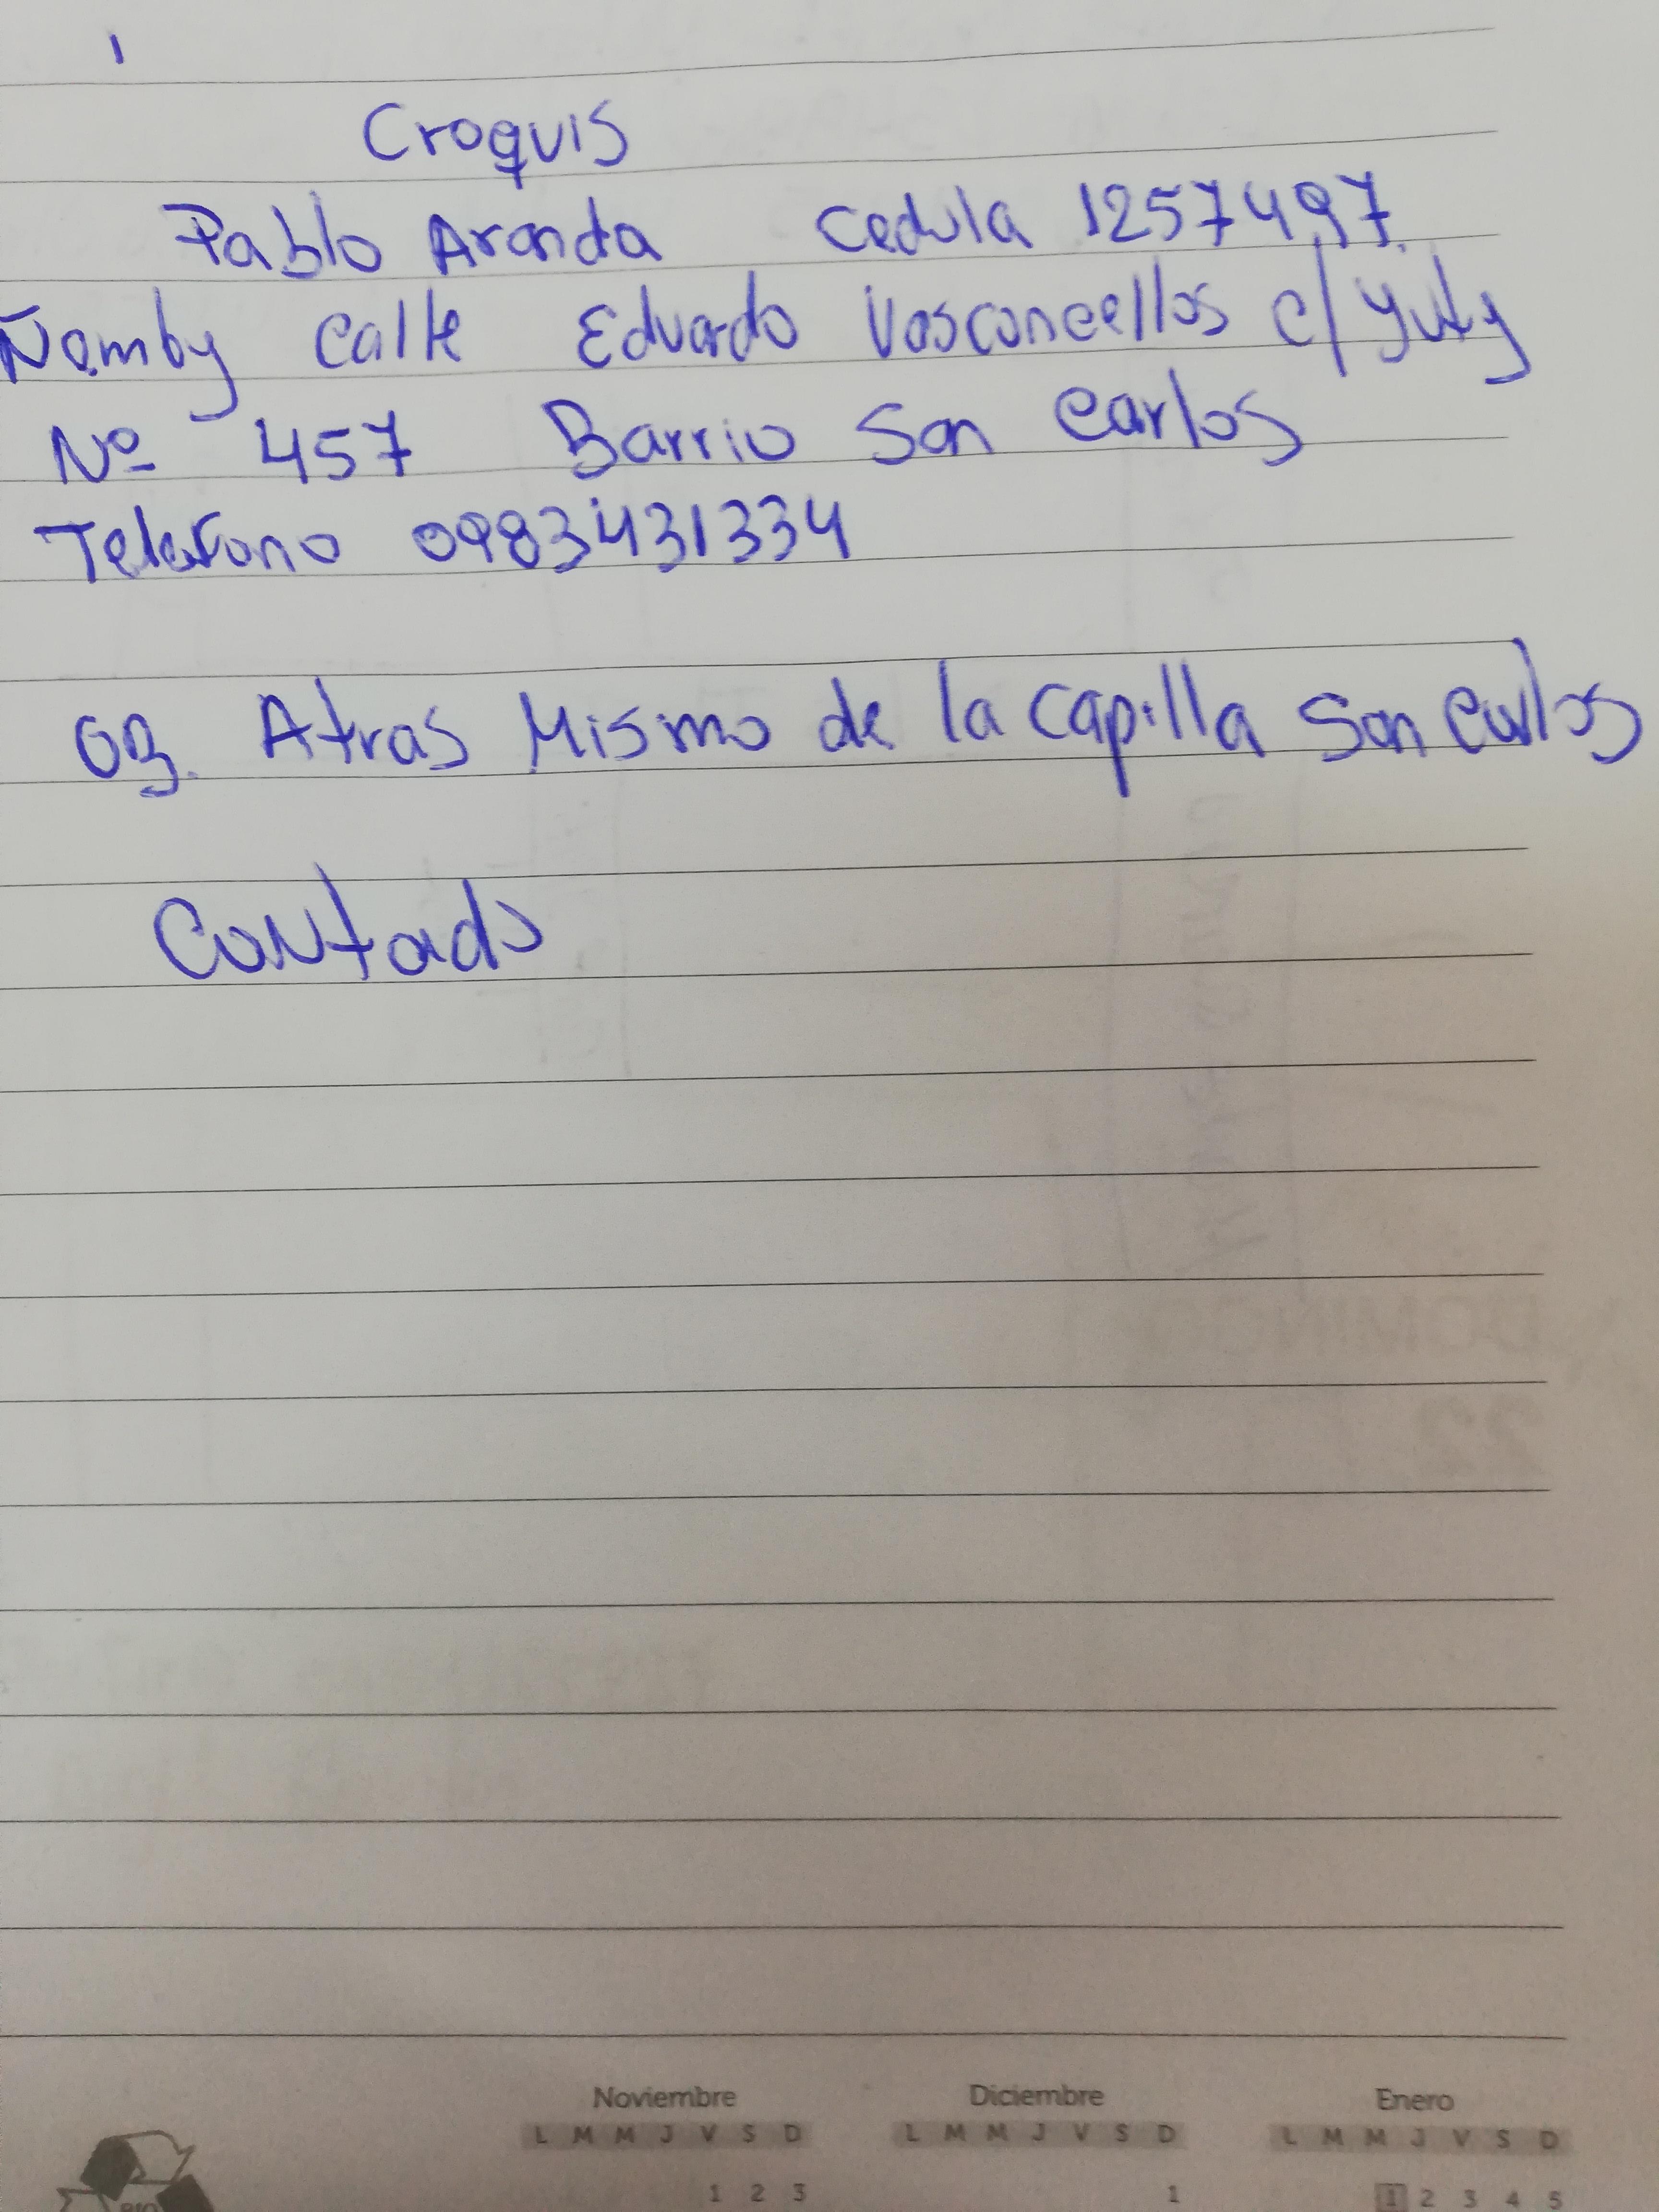 Croquis
Pablo Aranda Cedula 1257497
Ñemby Calle Eduardo Vasconcellos c/ Yuty
Nº 457 Barrio San Carlos
Telefono 0983431334
OB. Atras Mismo de la Capilla San Carlos
Contado
Noviembre Diciembre Enero
L M M J V S D L M M J V S D L M M J V S D
1 2 3 1 1 2 3 4 5